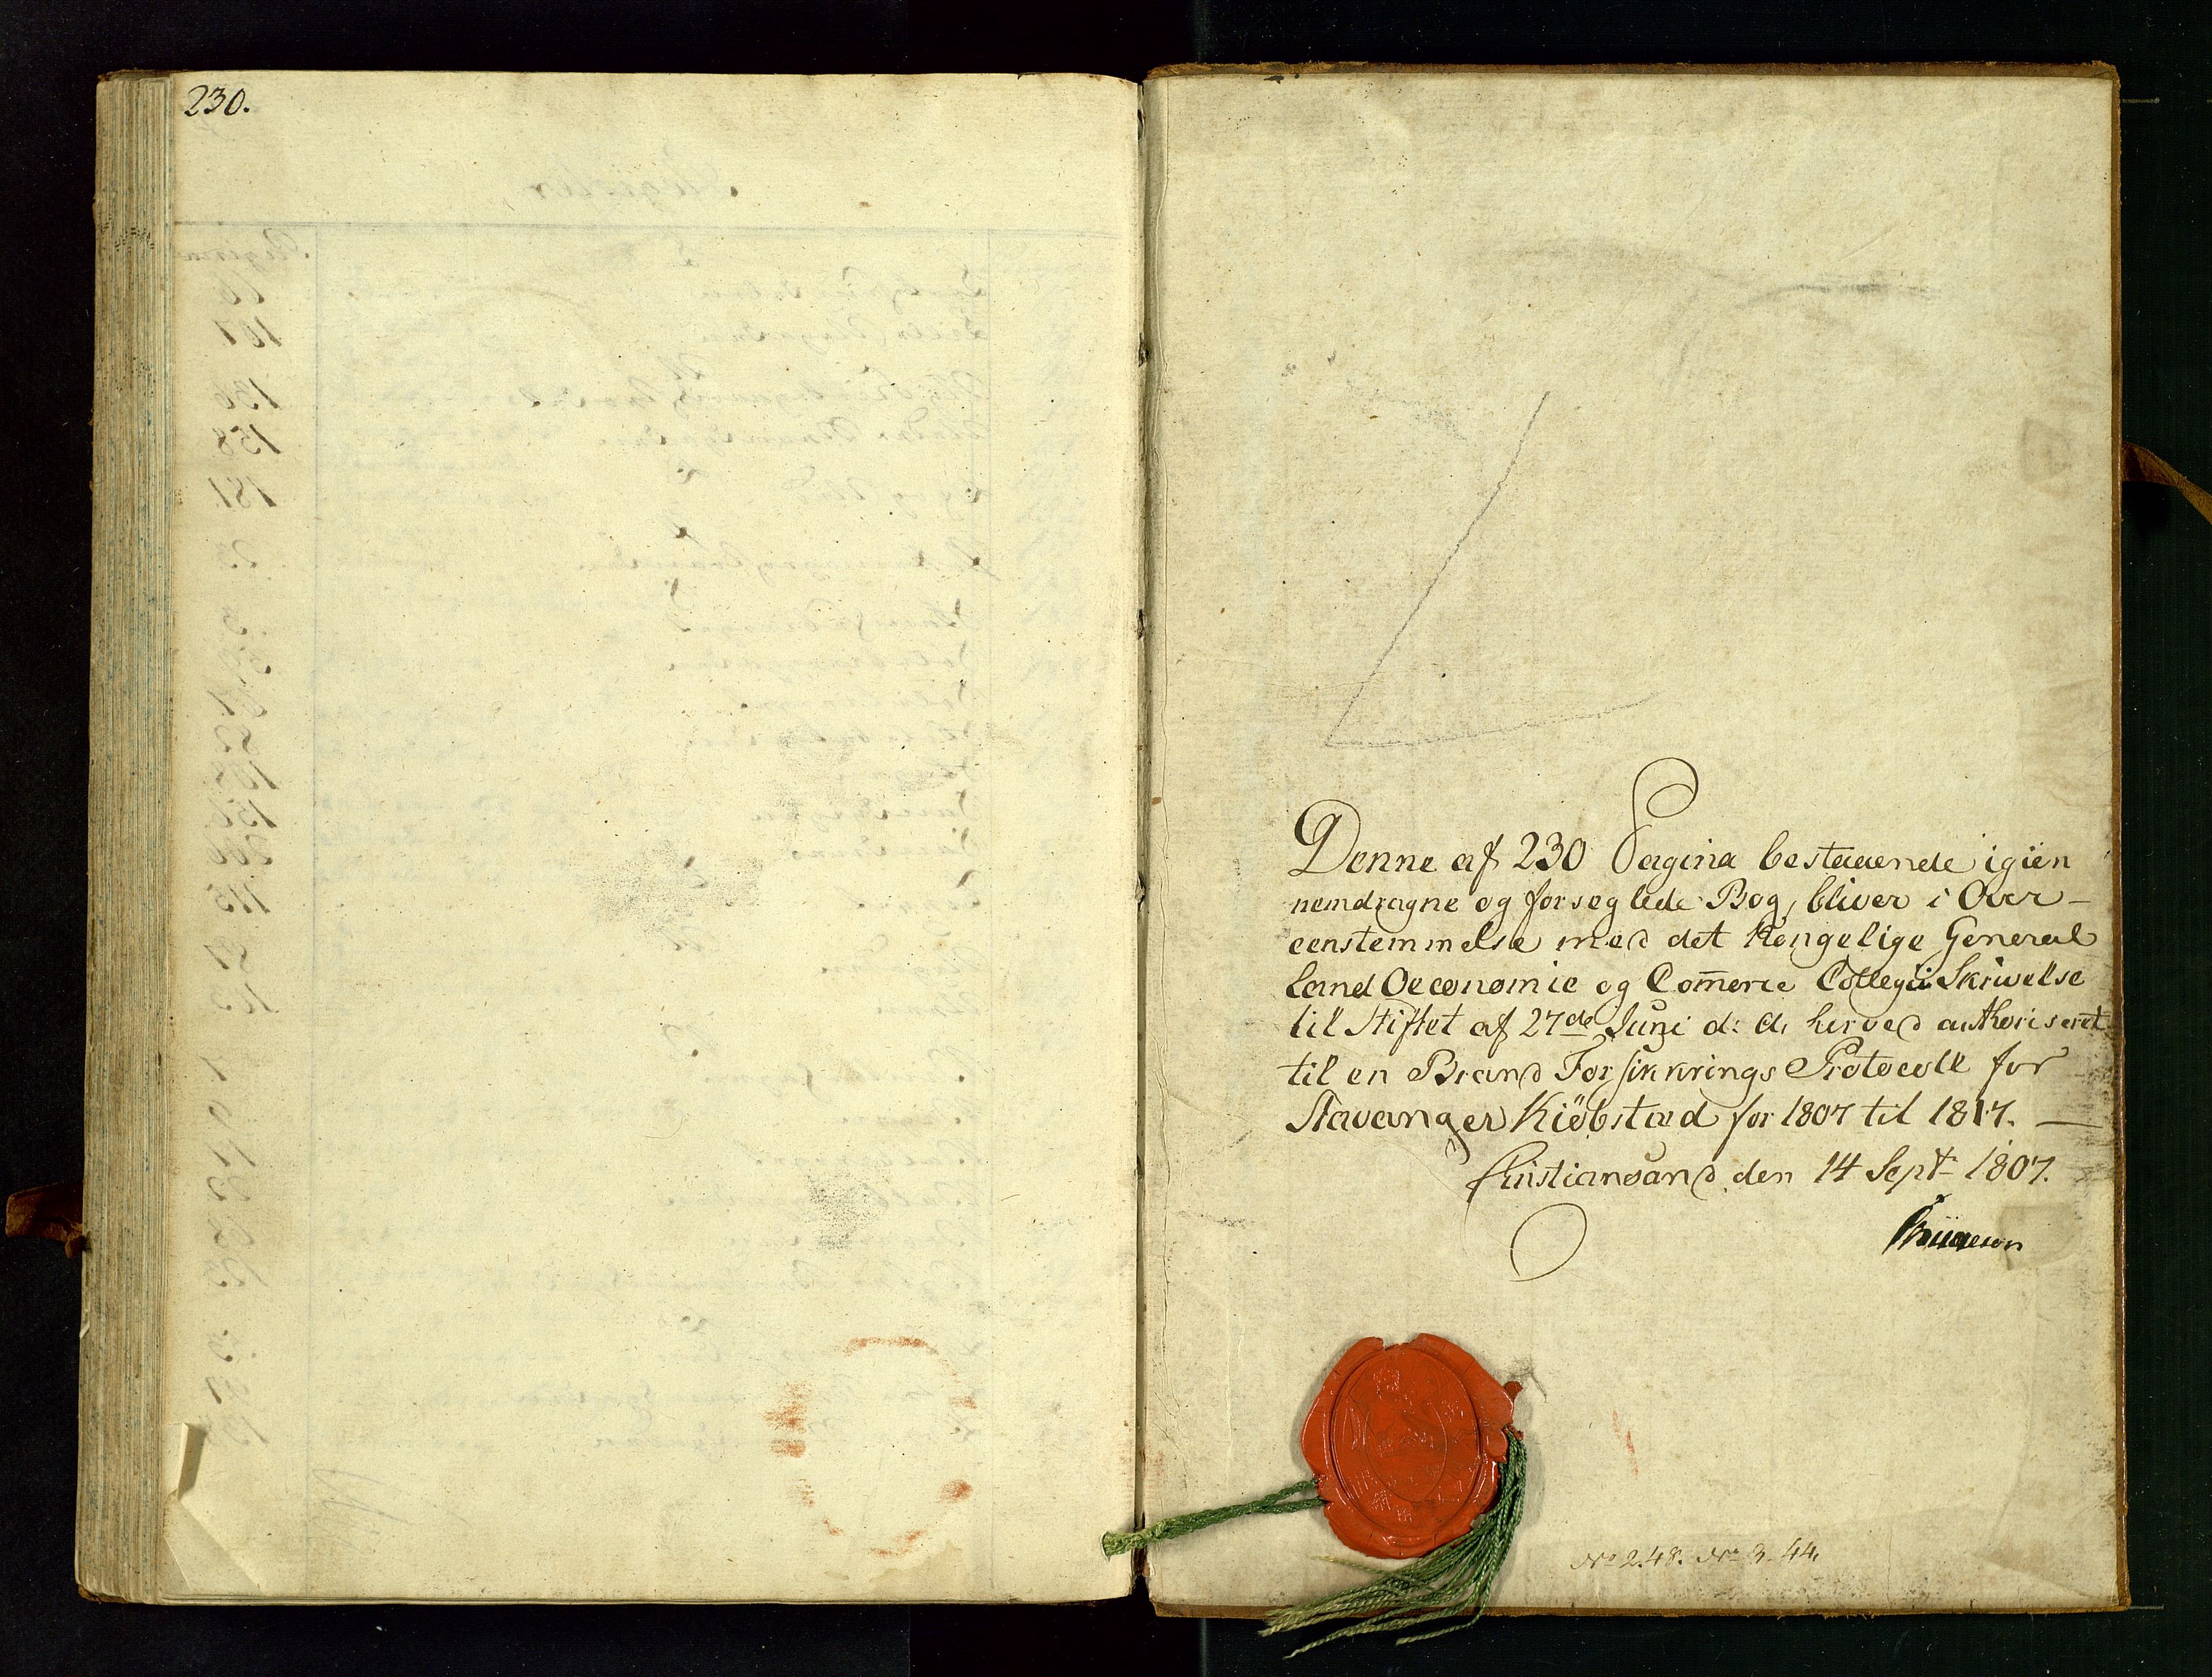 230.
Denne af 230 Pagina bestaaende igien
nemdragne og forseglede Bog, bliver i Over-
eenstemmelse med det Kongelige General
Land Oeconomie og Com̄erce Collegii Skrivelse
til Stiftet af 27de Juni d: A: herved authoriseret
til en Brand Forsikkrings Protocoll for
Stavanger Kiöbstad for 1807 til 1817. —
Christiansand den 14 Sept 1807.
No 2.48. No 3.44.